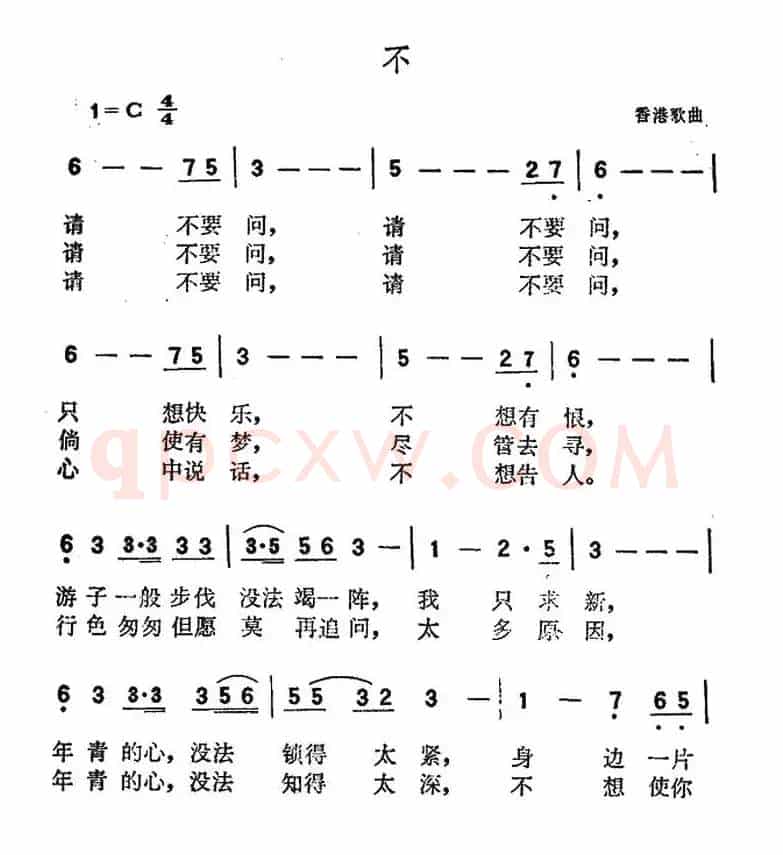 不
1=C 4/4
香港歌曲
6 — — 7 5 | 3 — — — | 5 — — 2 7 | 6 — — — |
请 不要 问， 请 不要 问，
请 不要 问， 请 不要 问，
请 不要 问， 请 不要 问，
6 — — 7 5 | 3 — — — | 5 — — 2 7 | 6 — — — |
只 想快 乐， 不 想有 恨，
倘 使有 梦， 尽 管去 寻，
心 中说 话， 不 想告 人。
qpcxw.COM
6 3 3·3 3 3 | 3·5 5 6 3 — | 1 — 2· 5 | 3 — — — |
游子一般步伐 没法竭一阵，我 只求新，
行色匆匆但愿 莫 再追问，太 多原因，
6 3 3·3 3 5 6 | 5 5 3 2 3 — | 1 — 7 6 5 |
年青的心，没法 锁得 太紧，身 边一片
年青的心，没法 知得 太深，不 想使你